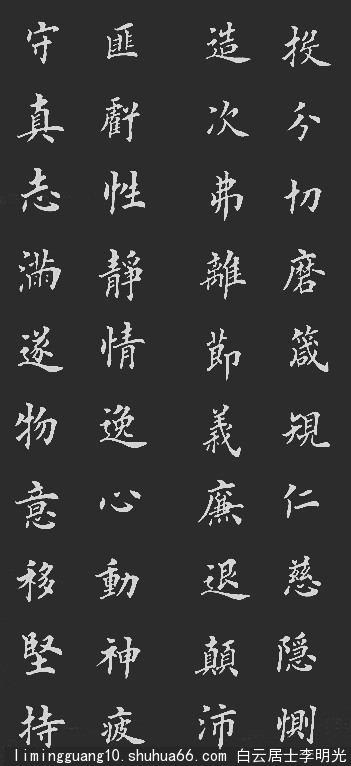 投分切磨箴規仁慈隱惻
造次弗離節義廉退顛沛
匪虧性靜情逸心動神疲
守真志滿逐物意移堅持
limingguang10.shuhua66.com 白云居士李明光